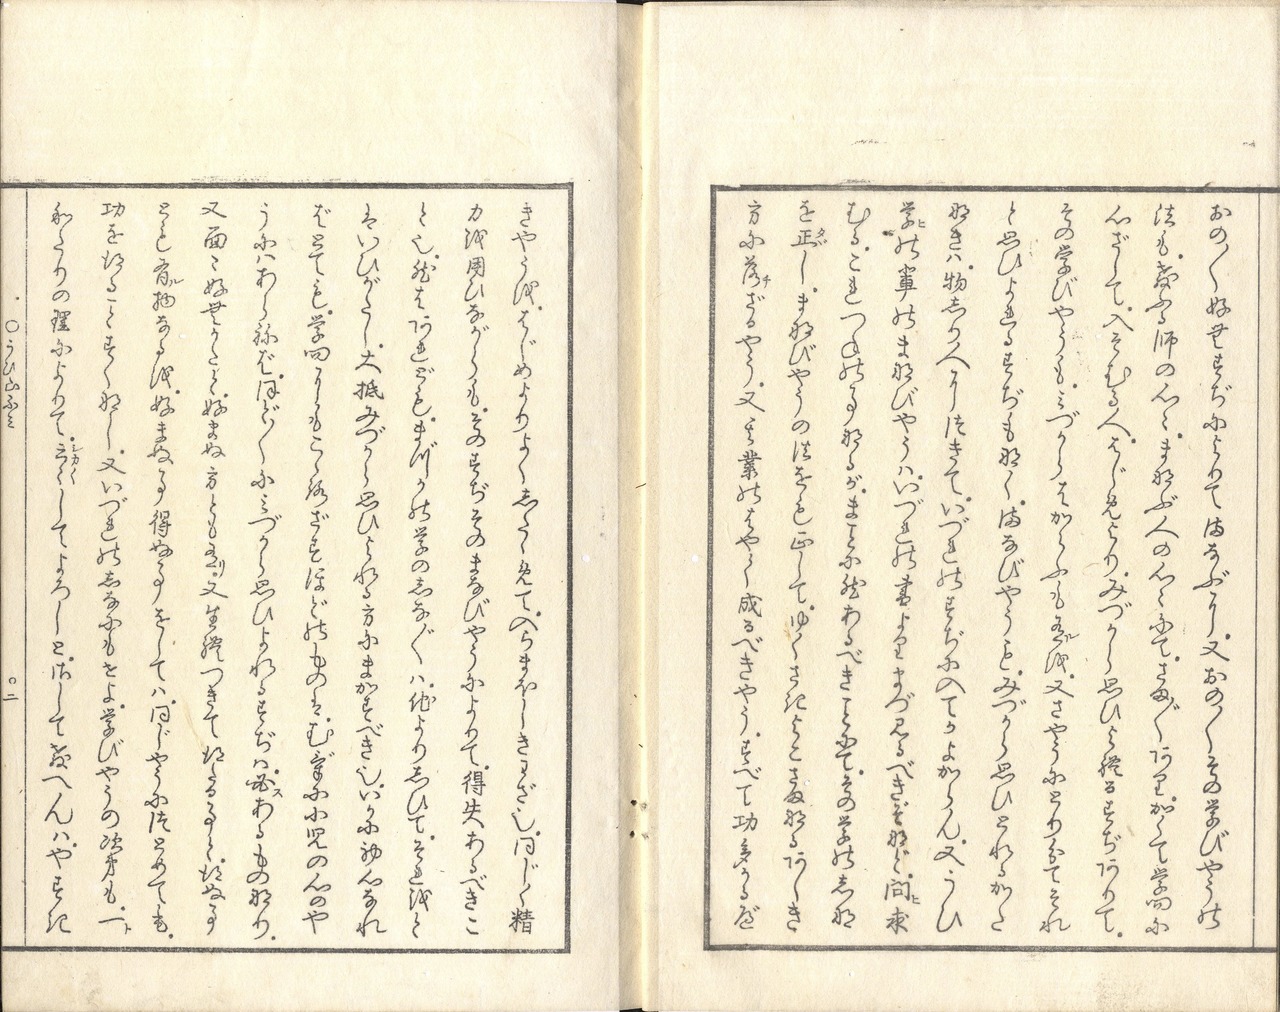 おの〳〵好むすぢによりてまなぶに。又おの〳〵その学びやうの
法も。教ふる師の心々。まなぶ人の心々にて。さま〴〵あり。かくて学問に
心ざして。入そむる人。はじめより。みづから思ひよれるすぢありて。
その学びやうも。みづからはからふも有ルを。又さやうにとりわけてそれ
と思ひよれるすぢもなく。まなびやうも。みづから思ひとれるかた
なきは。物しり人につきて。いづれのすぢに入てかよからん。又うひ
学ヒの輩のまなびやうは。いづれの書よりまづ見るべきぞなど。問ヒ求
むる。これつねの事なるが。まことに然あるべきことにて。その学のしな
を正タダし。まなびやうの法をも正して。ゆくさきよこさまなるあしき
方に落チざるやう。又其業のはやく成るべきやう。すべて功多かるべ
きやうを。はじめよりよくしたゝめて。入らまほしきわざ也。同じく精
力を用ひながらも。そのすぢそのまなびやうによりて。得失あるべきこ
と也。然はあれども。まづかの学のしな〴〵は。他よりしひて。それをと
はいひがたし。大抵みづから思ひよれる方にまかすべき也。いかに初心なれ
ばとても。学問にもこゝろざすほどのものは。むげに小児の心のや
うにはあらねば。ほど〳〵にみづから思ひよれるすぢは。必ズあるものなり。
又面々好むかたと。好まぬ方とも有リ。又生れつきて得たる事と。得ぬ事
とも有ル物なるを。好まぬ事得ぬ事をしては。同じやうにつとめても。
功を得ることすくなし。又いづれのしなにもせよ。学びやうの次第も。一ト
わたりの理によりて。云々シカ〳〵してよろしと。さして教へんは。やすき
○うひ山ふみ
○二